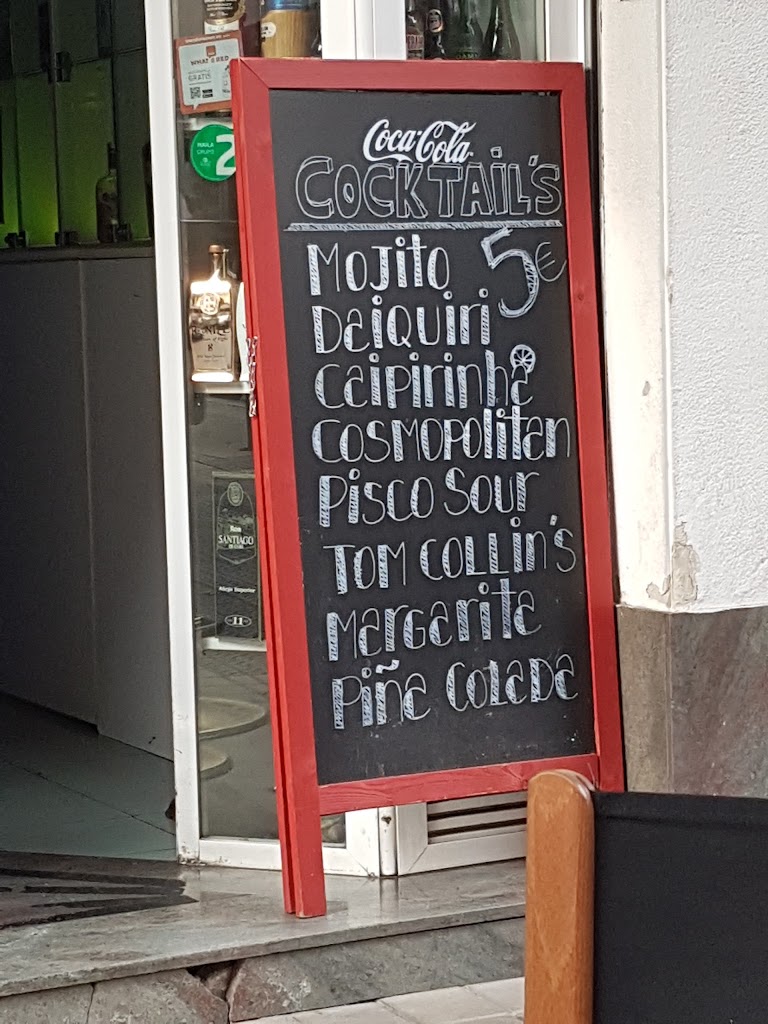 Coca-Cola
COCKTAIL'S
MOJITO 5€
DaiQUIRI
CaipiRINha
COSMOPOLITaN
PISCO SOUR
TOM COLLIN'S
MaRGaRITa
PIÑa COLaDa
2
SANTIAGO
11